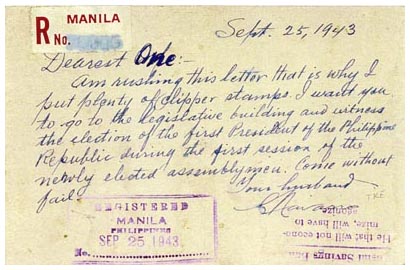 R MANILA
No.
Sept. 25, 1943
Dearest One:-
Am rushing this letter that is why I
put plenty of clipper stamps. I want you
to go to the legislative building and witness
the election of the first President of the Philippine
Republic during the first session of the
newly elected assemblymen. Come without
fail.
Your husband
REGISTERED
MANILA
PHILIPPINES
SEP 25 1943
No.
TKE
He that will not econo-
mize, will have to
agonize.
Savings